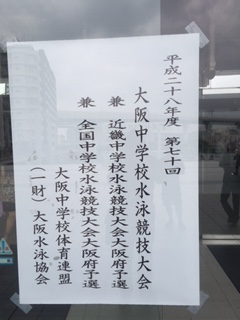 平成二十八年度 第七十回
大阪中学校水泳競技大会
兼 近畿中学校水泳競技大会大阪府予選
兼 全国中学校水泳競技大会大阪府予選
大阪中学校体育連盟
(一財)大阪水泳協会